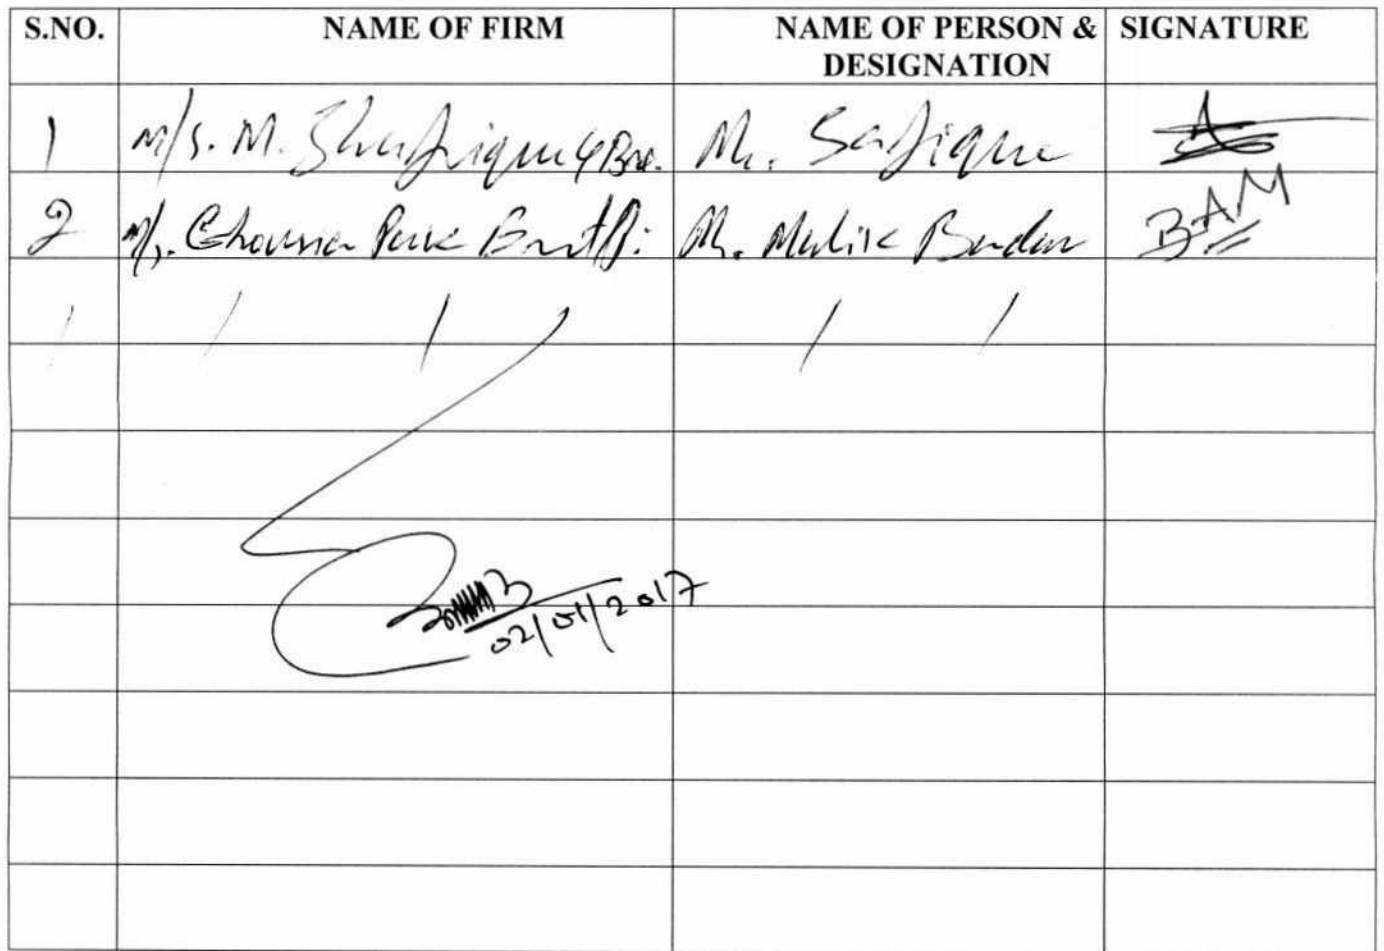 S.NO. NAME OF FIRM NAME OF PERSON & DESIGNATION SIGNATURE
1 M/S. M. Shafique & Bro. Mr. Safique
2 M/s. Ghousia Mr. Malik BAM
02/01/2017